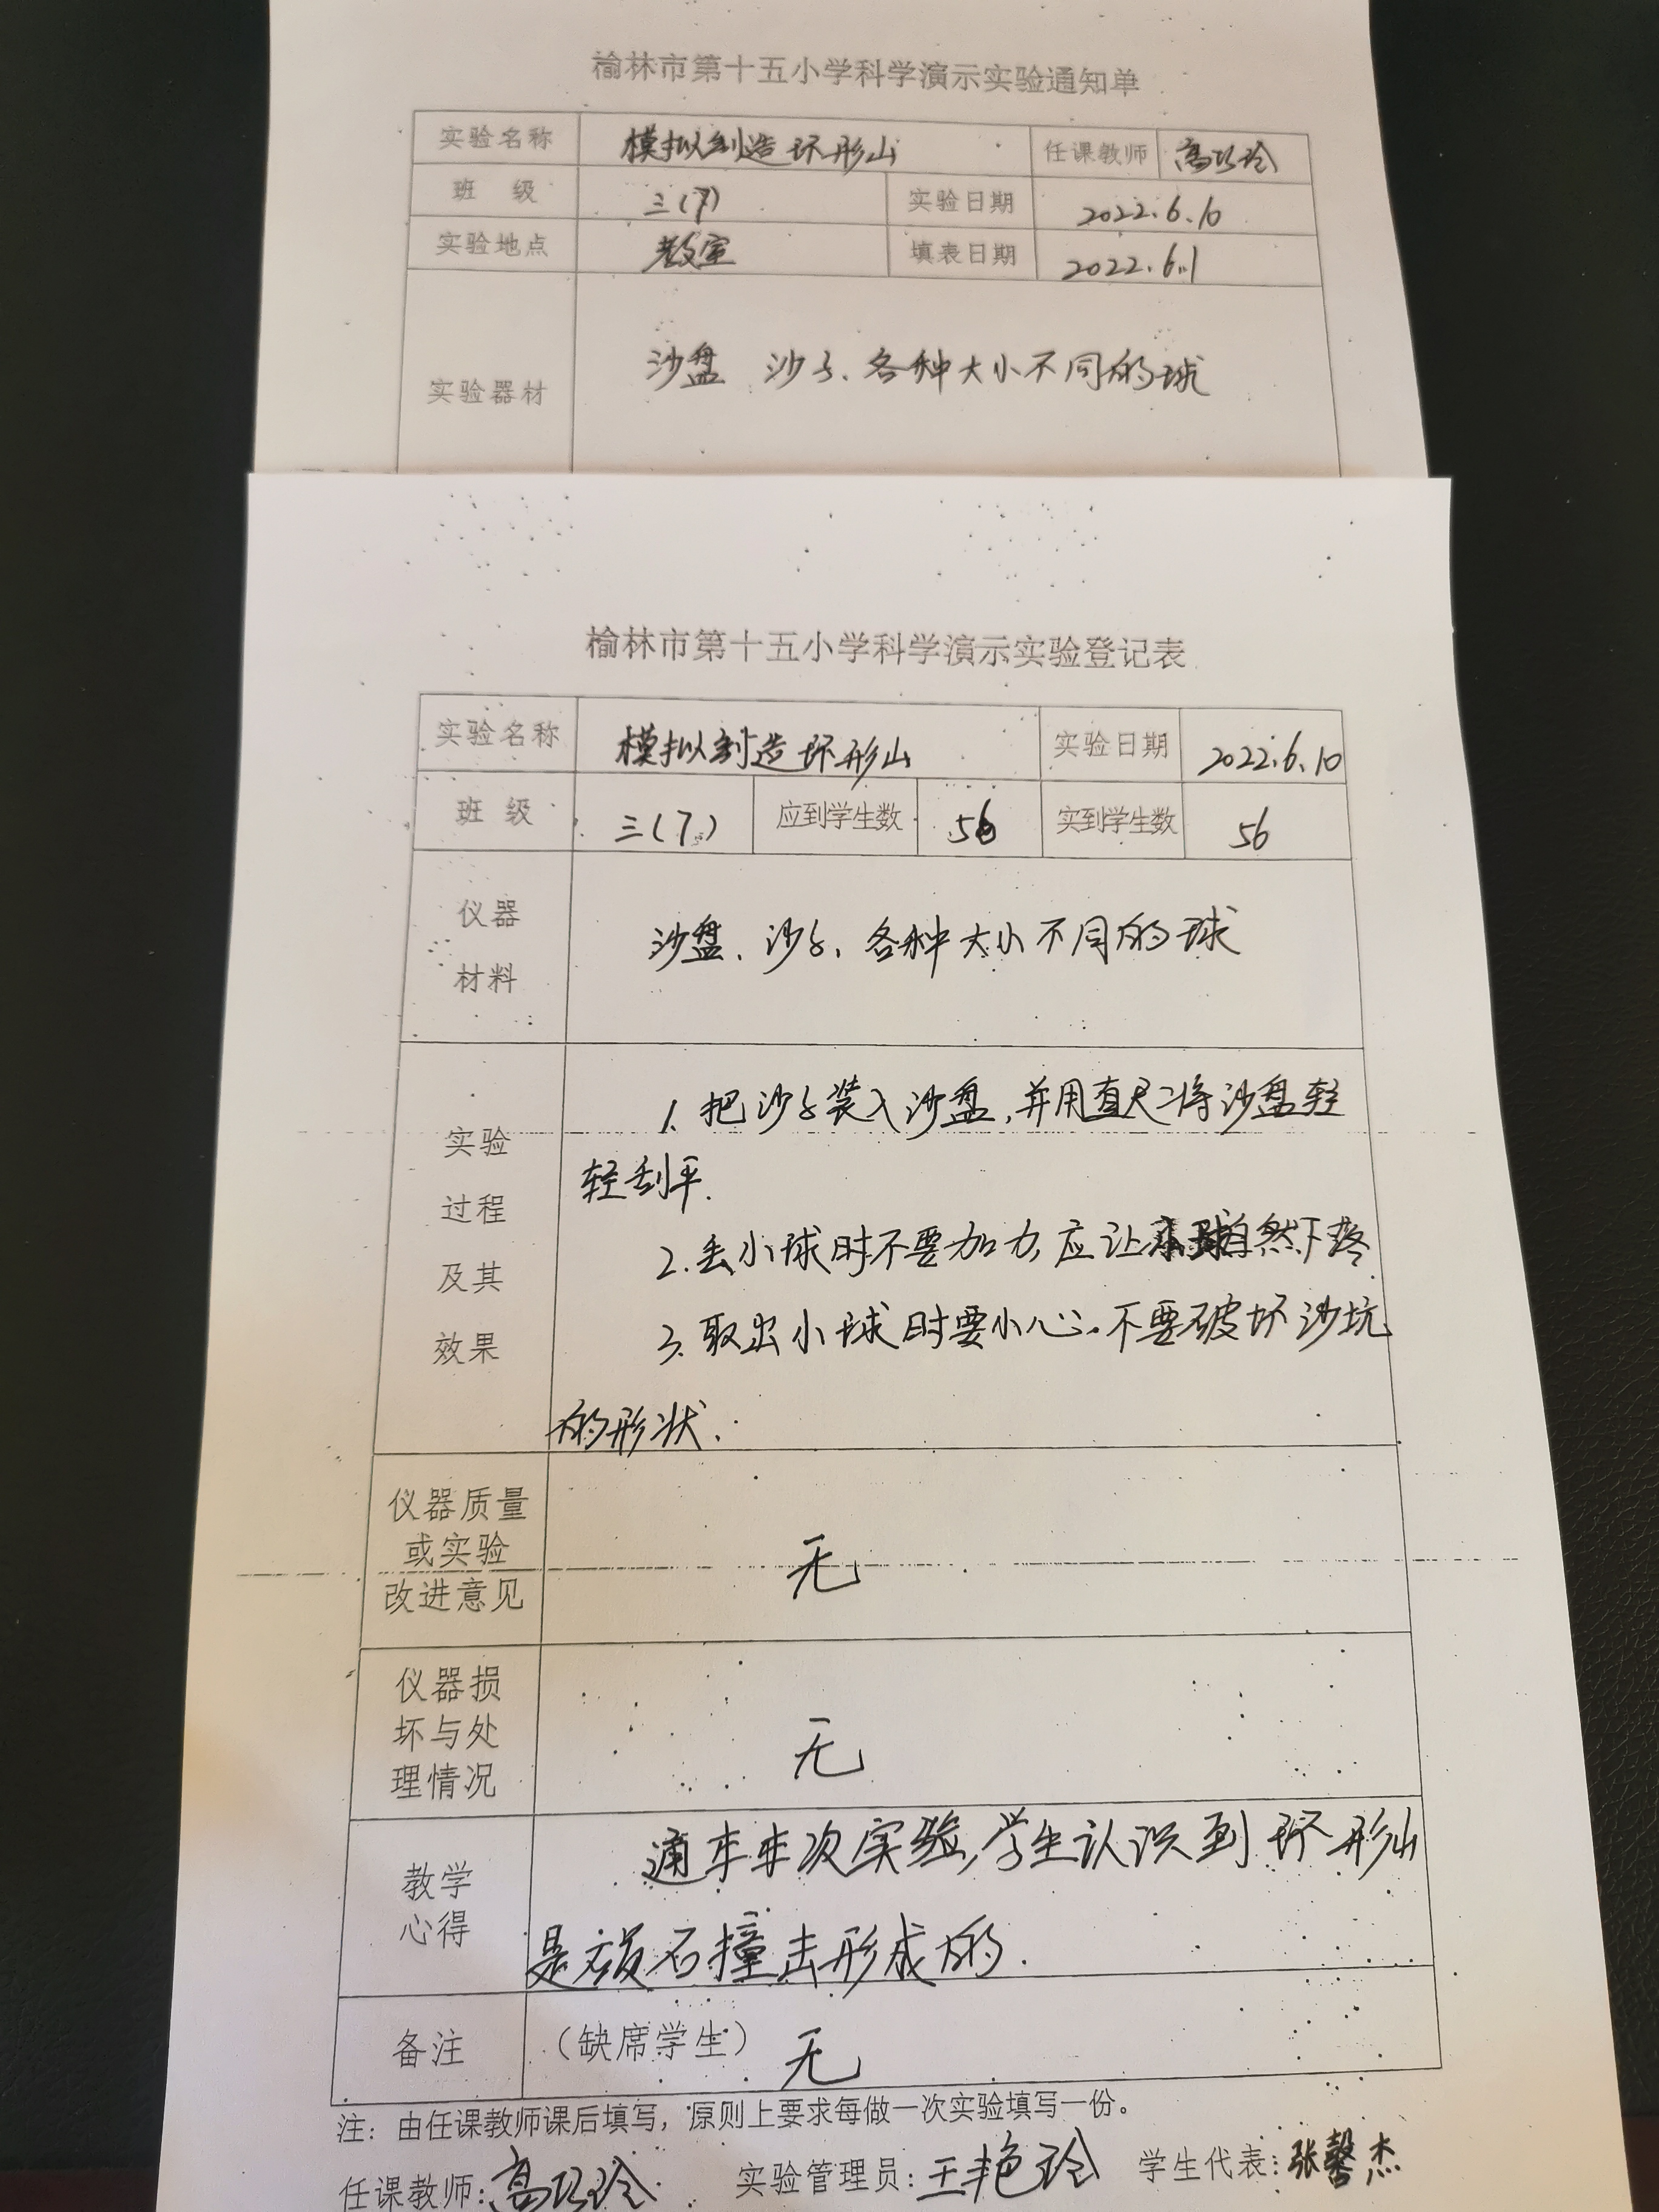 榆林市第十五小学科学演示实验通知单
实验名称 模拟制造环形山 任课教师 高巧玲
班 级 三(7) 实验日期 2022.6.10
实验地点 教室 填表日期 2022.6.1
实验器材 沙盘 沙子、各种大小不同的球
榆林市第十五小学科学演示实验登记表
实验名称 模拟制造环形山 实验日期 2022.6.10
班 级 三(7) 应到学生数 56 实到学生数 56
仪器
材料
沙盘、沙子、各种大小不同的球
实验
过程
及其
效果
1. 把沙子装入沙盘,并用直尺将沙盘轻
轻刮平.
2. 丢小球时不要加力,应让小球自然下
3. 取出小球时要小心.不要破坏沙坑
的形状.
仪器质量
或实验
改进意见
无
仪器损
坏与处
理情况
无
教学
心得
通 本次实验,学生认识到环形山
是 石撞击形成的.
备注 (缺席学生) 无
注：由任课教师课后填写，原则上要求每做一次实验填写一份。
任课教师:高巧玲 实验管理员:王艳玲 学生代表:张馨杰